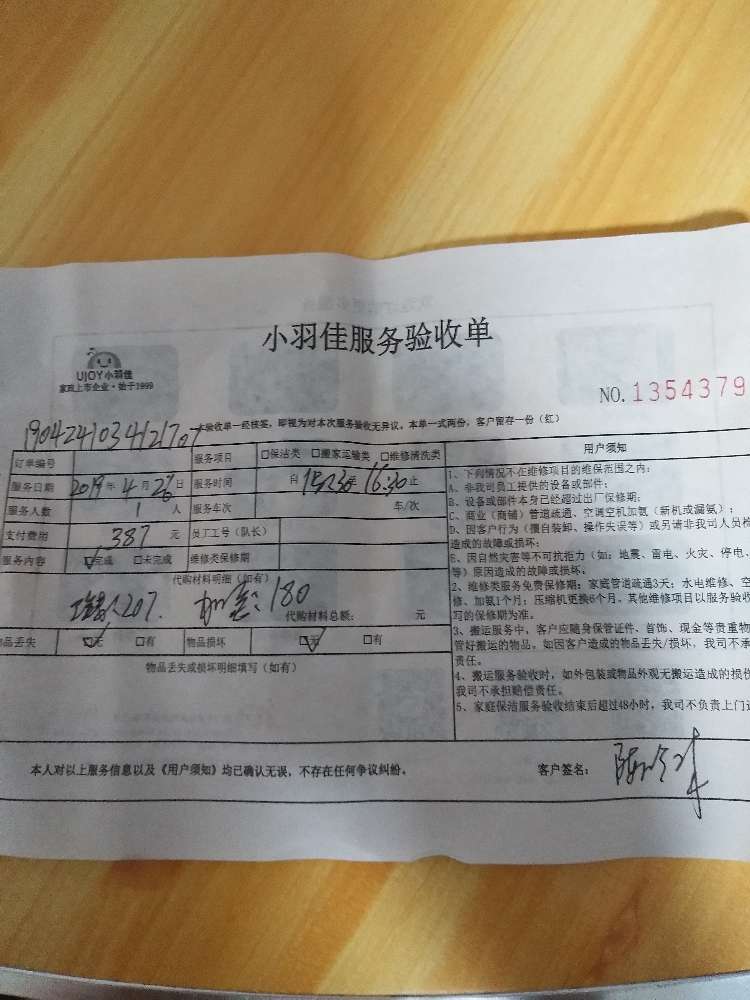 小羽佳服务验收单
UJOY小羽佳
家政上市企业·始于1999
NO.1354379
验收单一经核签，即视为对本次服务验收无异议。本单一式两份，客户留存一份（红）
订单编号
服务项目 □保洁类 □搬家运输类 □维修清洗类
服务日期 2019年4月 日
服务时间 自 16:30止
服务人数 1人
服务车次 车/次
支付费用 387元
员工工号（队长）
服务内容 ☑完成 □未完成
维修类保修期
代购材料明细（如有）
207. 180
代购材料总额： 元
品丢失 ☑无 □有
物品损坏 ☑无 □有
物品丢失或损坏明细填写（如有）
用户须知
1、下列情况不在维修项目的维保范围之内：
A、非我司员工提供的设备或部件；
B、设备或部件本身已经超过出厂保修期；
C、商业（商铺）管道疏通、空调空机加氨（新机或漏氨）；
D、因客户行为（擅自装卸、操作失误等）或另请非我司人员检
造成的故障或损坏；
E、因自然灾害等不可抗拒力（如：地震、雷电、火灾、停电、
等）原因造成的故障或损坏。
2、维修类服务免费保修期：家庭管道疏通3天；水电维修、空
修、加氨1个月；压缩机更换6个月。其他维修项目以服务验收
写的保修期为准。
3、搬运服务中，客户应随身保管证件、首饰、现金等贵重物
管好搬运的物品。如因客户造成的物品丢失/损坏，我司不承
责任。
4、搬运服务验收时，如外包装或物品外观无搬运造成的损伤
我司不承担赔偿责任。
5、家庭保洁服务验收结束后超过48小时，我司不负责上门
本人对以上服务信息以及《用户须知》均已确认无误，不存在任何争议纠纷。
客户签名：